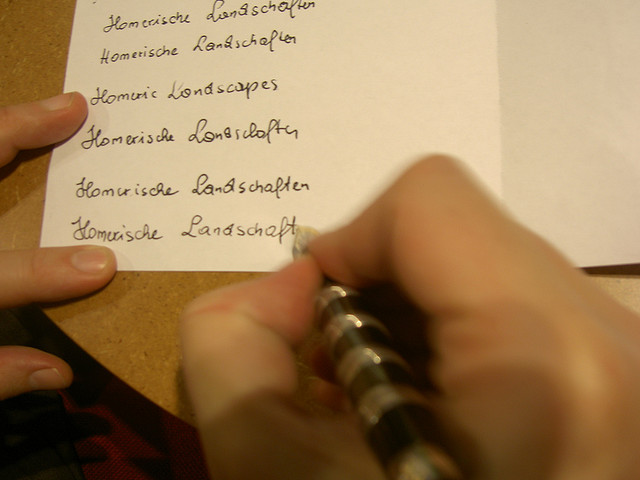 Homerische Landschaften
Homerische Landschaften
Homeric Landscapes
Homerische Landschaften
Homerische Landschaften
Homerische Landschaft